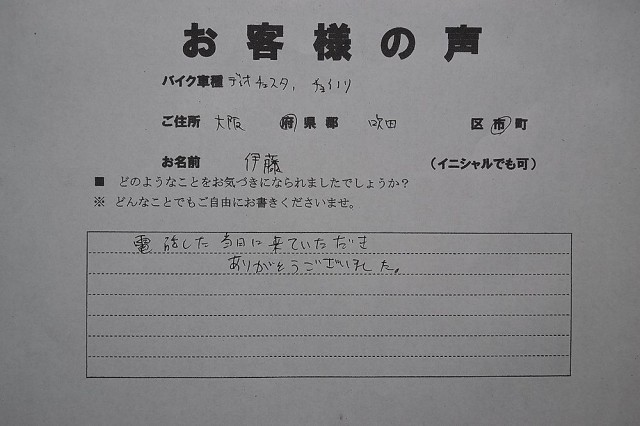 お客様の声
バイク車種 ディオチェスタ、チョイノリ
ご住所 大阪 府県都 吹田 区市町
お名前 伊藤 (イニシャルでも可)
■ どのようなことをお気づきになられましたでしょうか?
※ どんなことでもご自由にお書きくださいませ。
電話した当日に来ていただき
ありがとうございました。